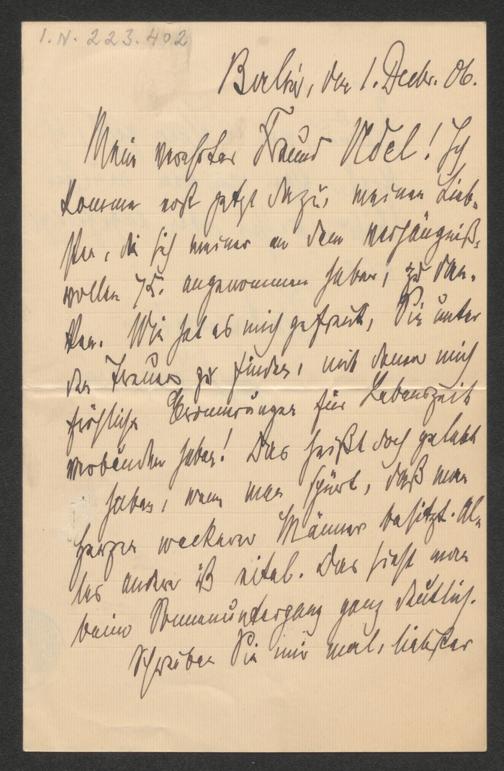 I.N. 223.402
Berlin, den 1. Decbr. 06.
Mein verehrter Freund Udel! Ich
komme erst jetzt dazu, meinen Lieb-
sten, die sich meiner an dem verhängniß-
vollen 75. angenommen haben, zu dan-
ken. Wie hat es mich gefreut, Sie unter
den Treuen zu finden, mit denen mich
fröhliche Erinnerungen für Lebenszeit
verbunden haben! Das heißt doch gelebt
haben, wenn man spürt, daß man
Herzen wackerer Männer besitzt. Al-
les andere ist eitel. Das sieht man
beim Sonnenuntergang ganz deutlich.
Schreiben Sie mir mal, liebster